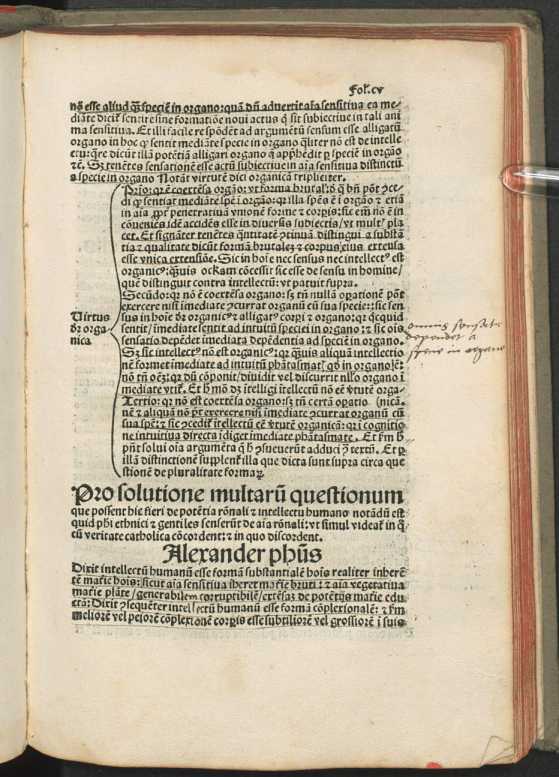 Fol.cv
nō esse aliud q̄ speciē in organo: quā dū aduertit aīa sensitiua ea me-
diāte dicit̄ sentire sine formatiōe noui actus q̄ sit subiectiue in tali ani
ma sensitiua. Et illi facile respōdēt ad argumētū sensum esse alligatū
organo in hoc q̄ sentit mediāte specie in organo qualiter nō est de intelle
ctu: q̄re dicūt illā potētiā alligari organo q̄ apprehēdit p̱ speciē in orgāo
⁊c̄. Sz tenētes sensationē esse actū subiectiue in aīa sensitiua distinctū
a specie in organo Notāt virtutē dici organicā tripliciter.
Prīo: qꝛ ē coextēsa orgāo: vt forma brutal': d̄ q̄ bn̄ pōt ↄce-
di q̄ sentiat mediāte spēi ī orgāo: qꝛ illa spēs ē ī orgāo ⁊ etiā
in aīa ꝓpt̄ penetratiuā vnionē forme ⁊ corpis: sic em̄ nō ē in
cōueniēs idē accidēs esse in diuersis subiectis/ vt mult' pla
cet. Et signāter tenētes q̄ntitatē ↄtinuā distingui a substā
tia ⁊ qualitate dicūt formā brutalez ⁊ corpus eius extensa
esse vnica extensiōe. Sic in hoīe nec sensus nec intellect' est
organic': q̄uis ockam cōcessit sic esse de sensu in homine/
quē distinguit contra intellectū: vt patuit supra.
Secūdo: qꝛ nō ē coextēsa organo: sz tn̄ nullā operationē pōt
exercere nisi īmediate ↄcurrat organū cū sua specie: sic sen
sus in hoīe dr̄ organic' ⁊ alligat' corpi ⁊ organo: qꝛ q̄cquid
sentit/ īmediate sentit ad intuitū speciei in organo: ⁊ sic oīs
sensatio depēdet īmediata depēdentia ad speciē in organo.
Sz sic intellect' nō est organic': qꝛ q̄uis aliquā intellectio
nē formet īmediate ad intuitū phātasmat' q̄d in organo: lz
nō tn̄ oēz: qꝛ dū cōponit/ diuidit vel discurrit nullo organo ī
mediate vtit̄. Et h̄ mō dz ītelligi ītellectū nō eē v̄tutē orga-
Tertio: qꝛ nō est coextēsa organo: sz tn̄ certā operatio (nicā.
nē ⁊ aliquā nō pōt exercere nisi īmediate ↄcurrat organū cū
sua spē: ⁊ sic ↄcedit̄ ītellectū eē v̄tutē organicā: qꝛ ī cognitio
ne intuitiua directa īdiget īmediate phātasmate. Et fm̄ h̄
pn̄t solui oīa argumēta q̄ h̄ ↄsueuerūt adduci ↄ̄ textū. Et p̱
illā distinctionē supplent̄ illa que dicta sunt supra circa que
stionē de pluralitate formaꝝ.
Virtus
dr̄ orga-
nica
omnis sensatio
dependet a
specie in organo
Pro solutione multarū questionum
que possent hic fieri de potētia rōnali ⁊ intellectu humano notādū est
quid phi ethnici ⁊ gentiles senserūt de aīa rōnali: vt simul videat̄ in q̄
cū veritate catholica cōcordent: ⁊ in quo discordent.
Alexander phūs
Dixit intellectū humanū esse formā substantialē hoīs realiter inherē
tē mat̄ie hoīs: sicut aīa sensitiua īheret mat̄ie bruti: ⁊ aīa vegetatiua
mat̄ie plāte/ generabilem corruptibilē/ extēsaz de potētijs mat̄ie edu
ctā: Dixit ↄsequēter intellectū humanū esse formā cōplexionalē: ⁊ fm̄
meliorē vel peiorē cōplexionē corpis esse subtiliorē vel grossiorē ī suis